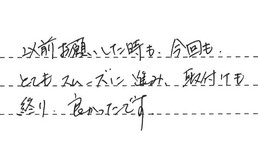 以前お願いした時も、今回も、
とてもスムーズに進み、取付けも
終り、良かったです